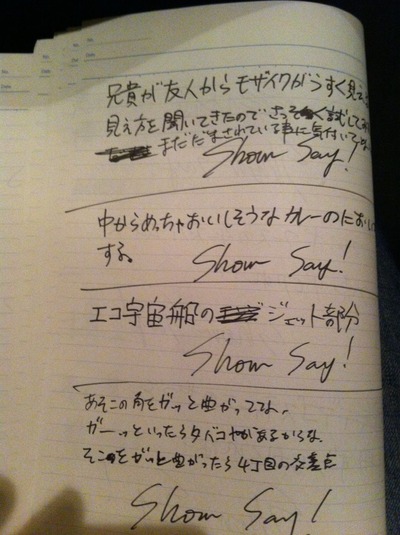 兄貴が友人からモザイクがうすく見え
見え方を聞いてきたのでさっそく試して
まだだまされている事に気付いて
Show Say!
中からめっちゃおいしそうなカレーのにおい
する
Show Say!
エコ宇宙船のジェット部分
Show Say!
あそこの角をガッと曲がってな、
ガーッといったらタバコヤがあるからな、
そこをガッと曲がったら4丁目の交差点
Show Say!